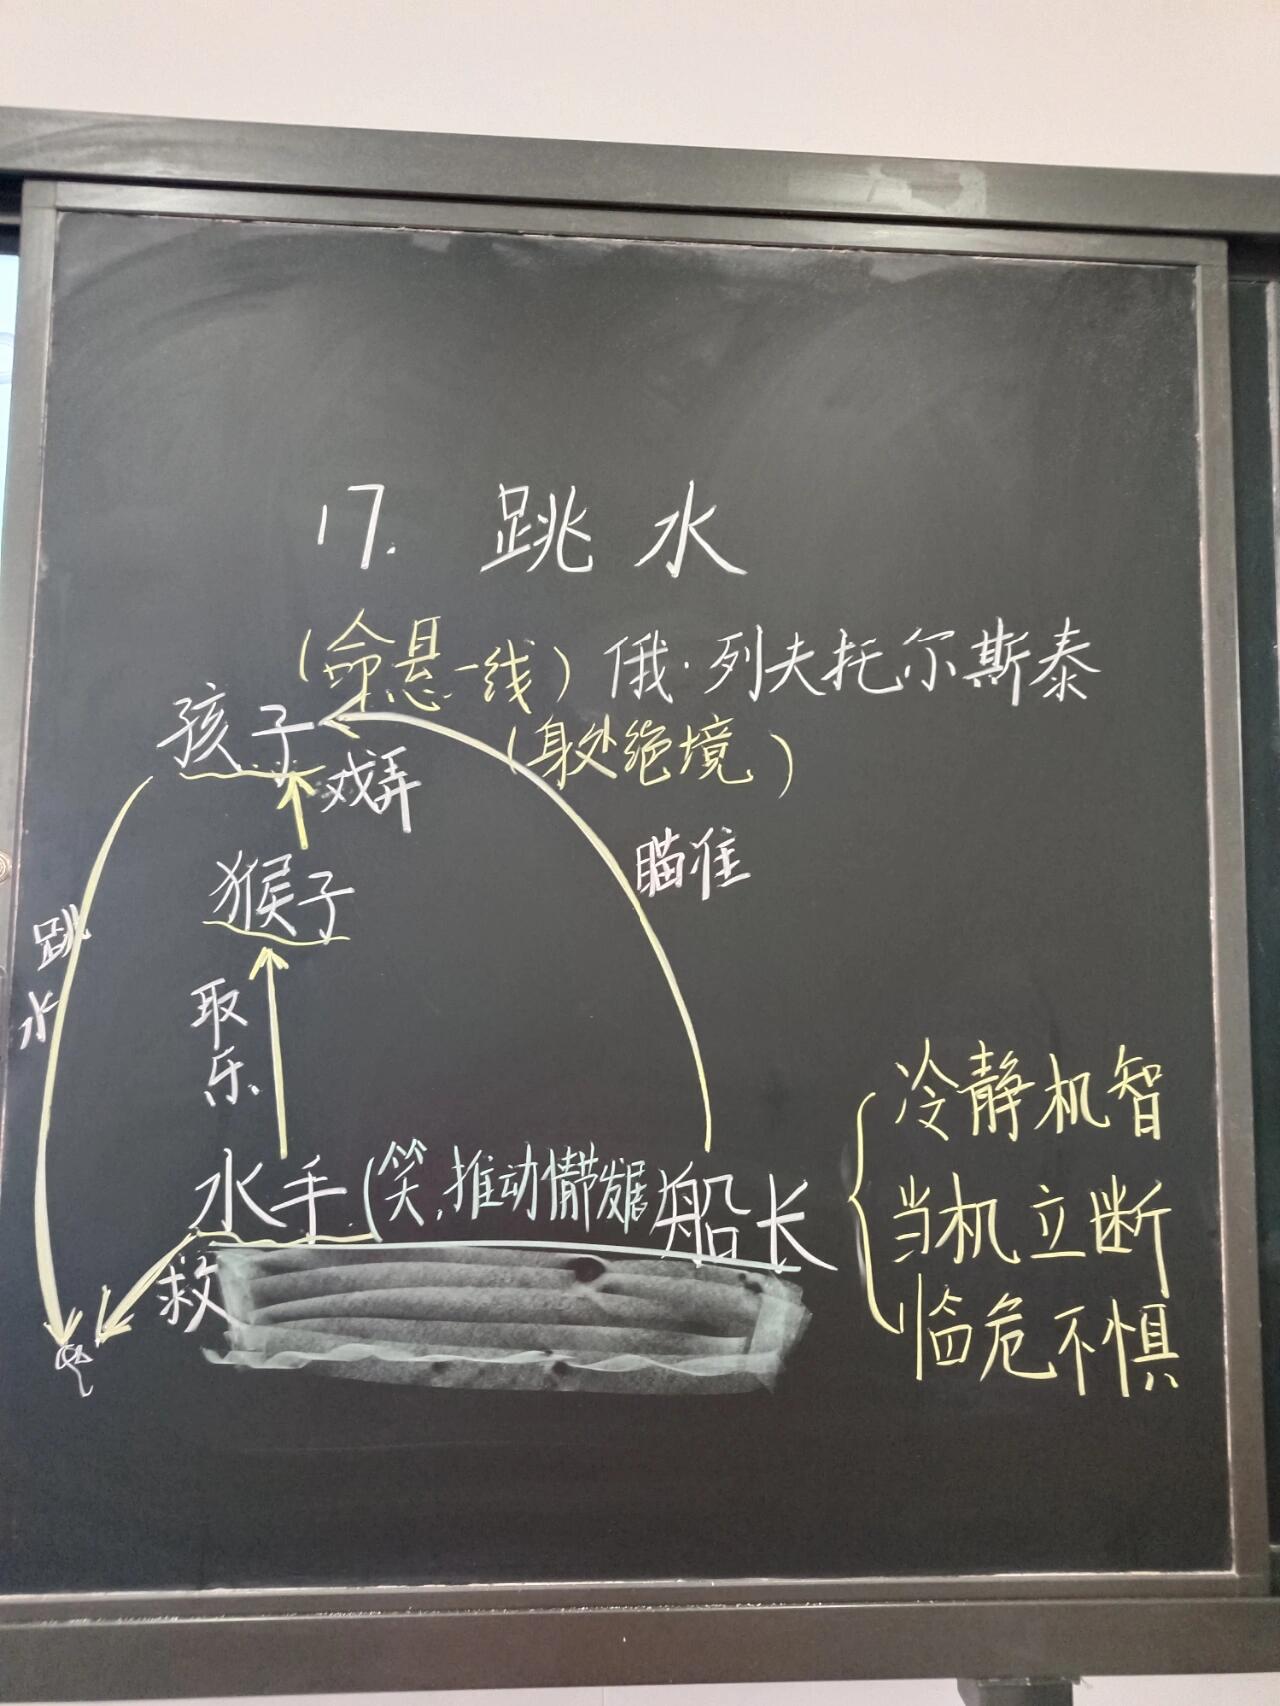 17. 跳水
(命悬一线) 俄·列夫托尔斯泰
孩子
(身处绝境)
戏弄
瞄准
猴子
跳水
取乐
冷静机智
水手(笑,推动情节发展)船长
当机立断
救
临危不惧